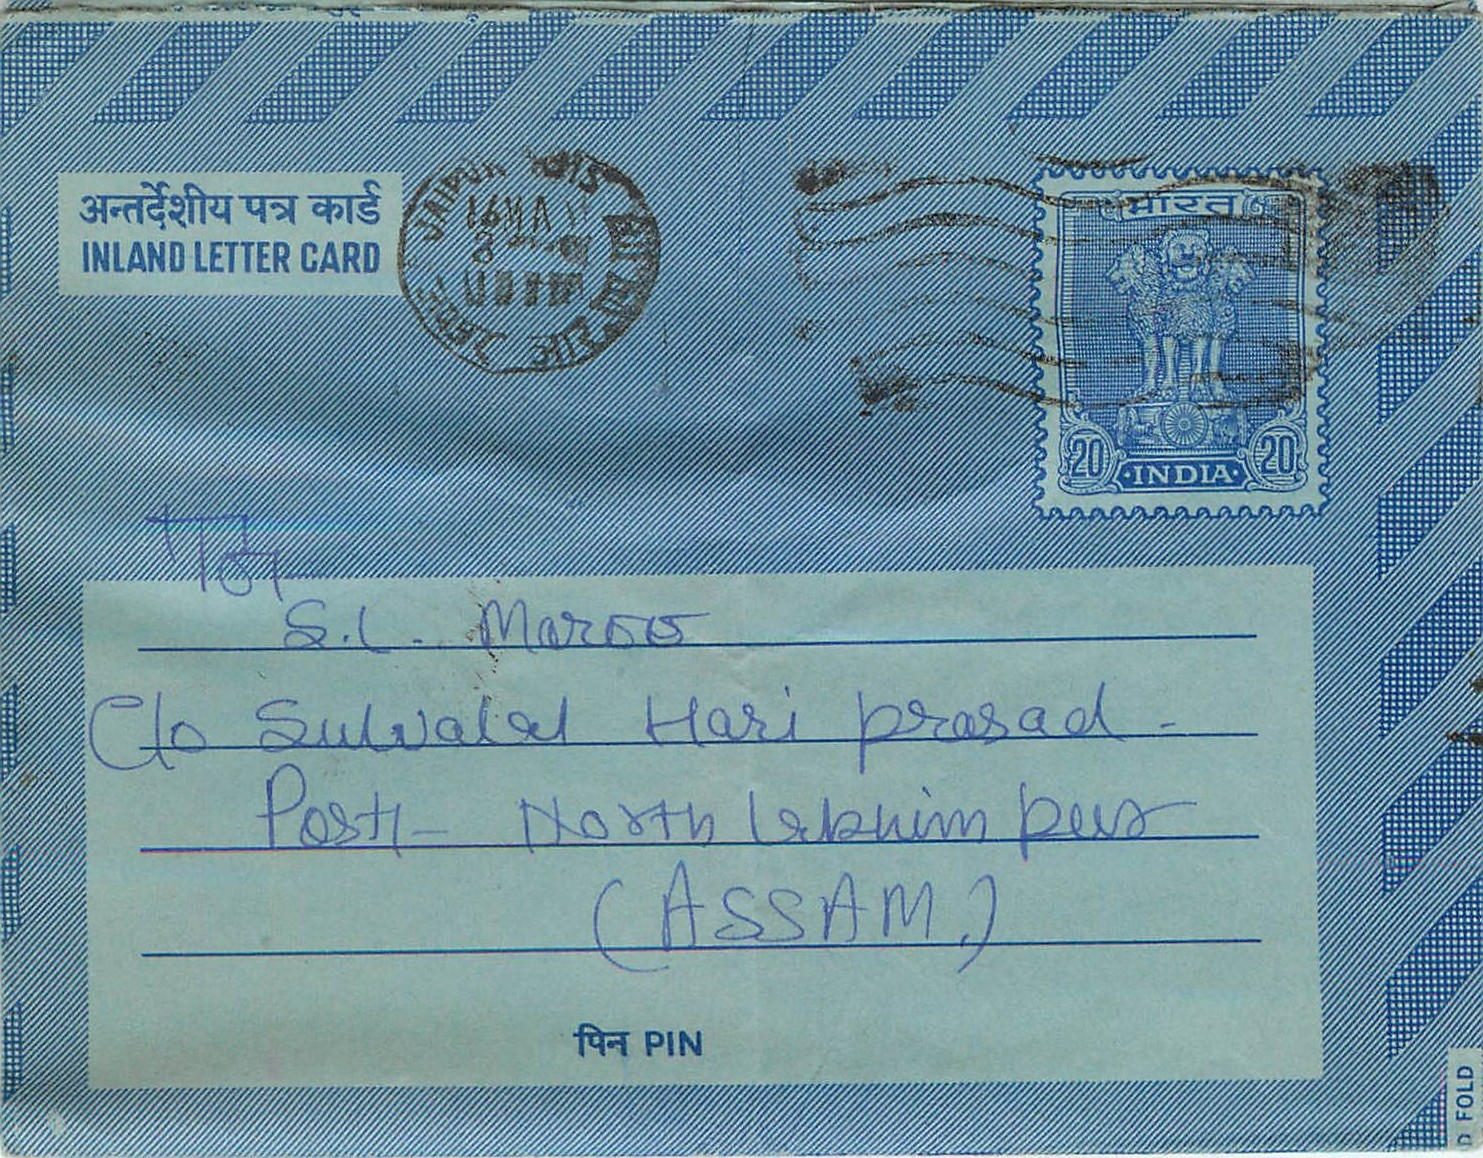 अन्तर्देशीय पत्र कार्ड
INLAND LETTER CARD
भारत
20 INDIA 20
To,
S.L. Maroo
C/o Sulvalal Hari prasad -
Post - North Lakhimpur
(ASSAM.)
पिन PIN
FOLD